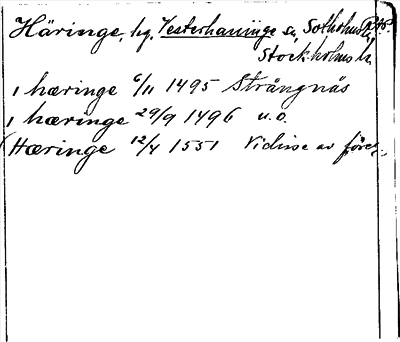 Häringe, hg. Vesterhaninge sn, Sotholms hd,
Stockholms l.
i hæringe 6/11 1495 Strängnäs
i hæringe 29/9 1496 u.o.
(Hæringe 12/4 1551 Vidisse av föreg.,